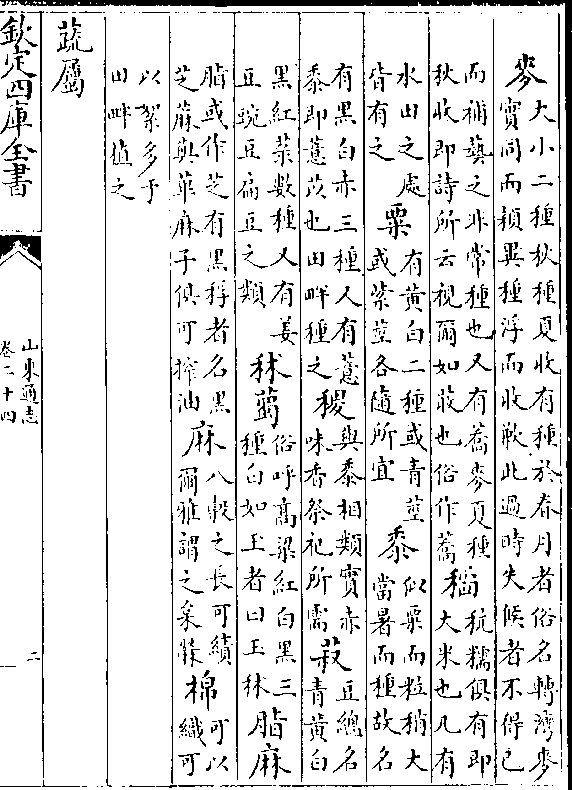 麥大小二種秋種夏收有種於春月者俗名轉灣麥
實同而穎異種浮而收歉此過時失候者不得已
而補藝之非常種也又有蕎麥夏種
秋收即詩所云視爾如荍也俗作蕎
稻秔糯俱有即
大米也凡有
水田之處
皆有之
粟有黄白二種或青莖
或紫莖各隨所宜
黍似粟而粒稍大
當暑而種故名
有黑白赤三種又有薏
黍即薏苡也田畔種之
稷與黍相類實赤
味香祭祀所需
菽豆總名
青黄白
黑紅菉數種又有姜
豆豌豆扁豆之類
秫薥俗呼髙粱紅白黑三
種白如玉者曰玉秫
脂麻
脂或作芝有黑稃者名黑
芝蔴與萆麻子俱可搾油
麻八榖之長可績
爾雅謂之枲蔴
棉可以
織可
以絮多于
田畔植之
蔬屬
欽定四庫全書
山東通志
卷二十四
二